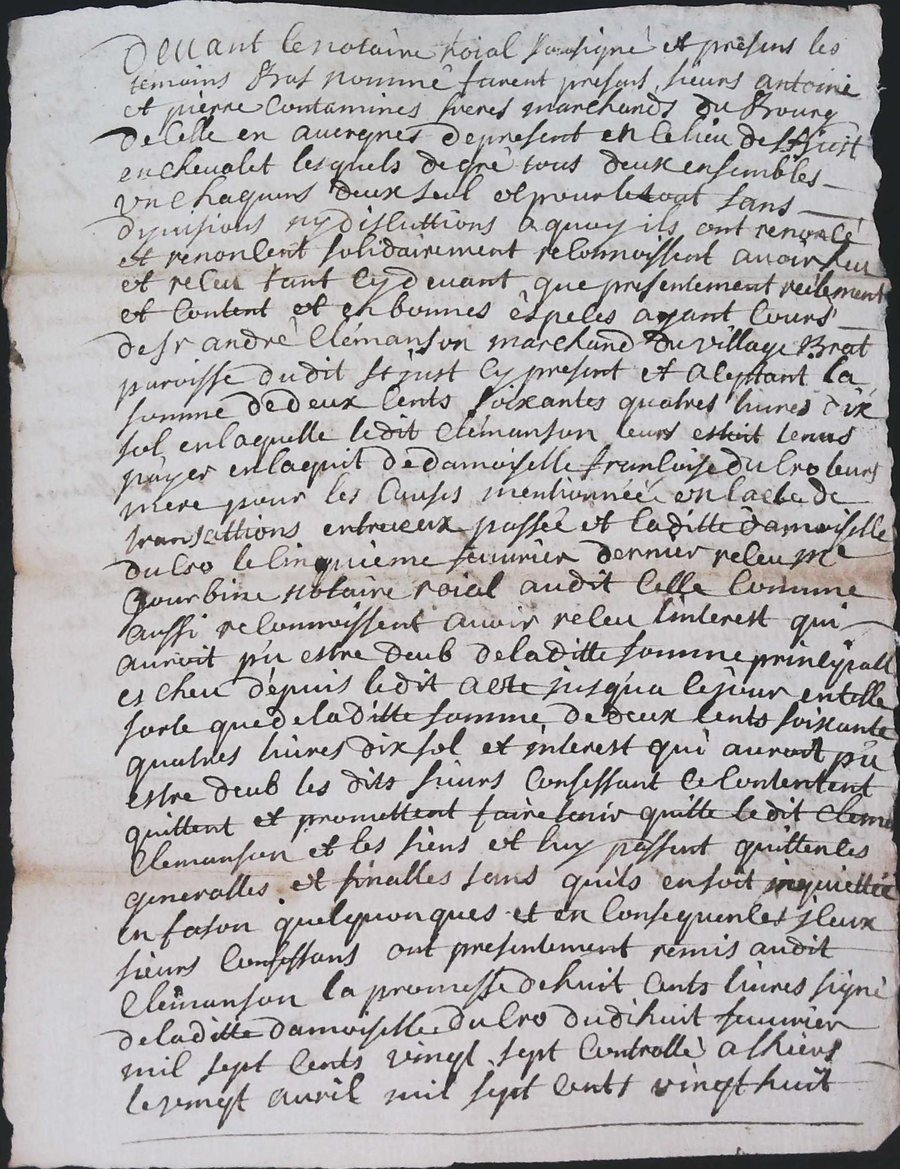 Devant le notaire Roial sousigné et présens les
temoins bas nommé furent presens sieurs antoine
et pierre Contamines freres marchands du Bourg
de Celle en auvergnes depresent en ce lieu de st Just
en chevalet lesquels de gré tous deux ensembles
un chaquns deux seul et pour le tout sans
dyvisions ny discuttions a quoy ils ont renoncé
et renoncent solidairement reconnoissent avoir heu
et receu tant cy devant que presentement reelement
et content et en bonnes èspeces ayant cours
de sr andré Clémanson marchand du village Brat
paroisse dudit st just cy present et aceptant la
somme de deux cents soixantes quatres livres dix
sol en laquelle ledit Clémanson leurs estoit tenus
payer en laquit de damoiselle francoise du Cro leurs
mere pour les Causes mentionnéé en lacte de
transattions entreceux passéé et laditte damoiselle
du Cro le cinquieme feuvrier dernier receu me
Bourbine notaire roial audit Celle comme
aussi reconnoissent avoir receu linterest qui
auroit pu estre deub de laditte somme principall
escheu dépuis ledit acte jusqua ce jour en telle
sorte que de laditte somme de deux cents soixante
quatres livres dix sol et interest qui auroit pu
estre deub les dits sieurs Confessant ce contentent
quittent et promettent faire tenir quitte ledit Cleme
Clemanson et les siens et luy passent quittences
generalles et finalles sans quils en soit inquiettéé
en fason quelquonques et en Consequences iceux
sieurs Confessans ont presentement remis audit
Clémanson la promesse de huit Cents livres signé
de laditte damoiselle du Cro du dihuit feuvrier
mil sept Cents vingt sept Controllé a thiers
le vingt avril mil sept Cents vingt huit